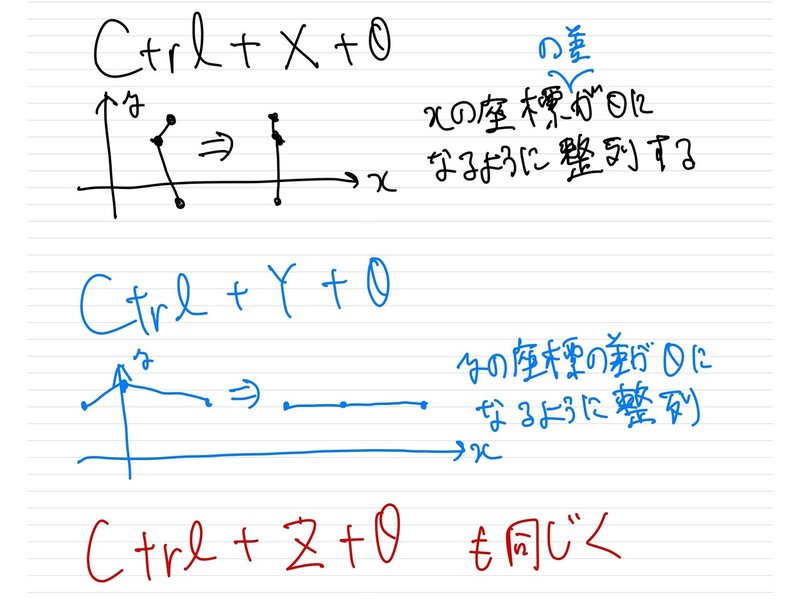 Ctrl + X + 0
の差
xの座標が0に
なるように整列する
y
⇒
x
Ctrl + Y + 0
yの座標の差が0に
なるように整列
y
⇒
x
Ctrl + Z + 0 も同じく